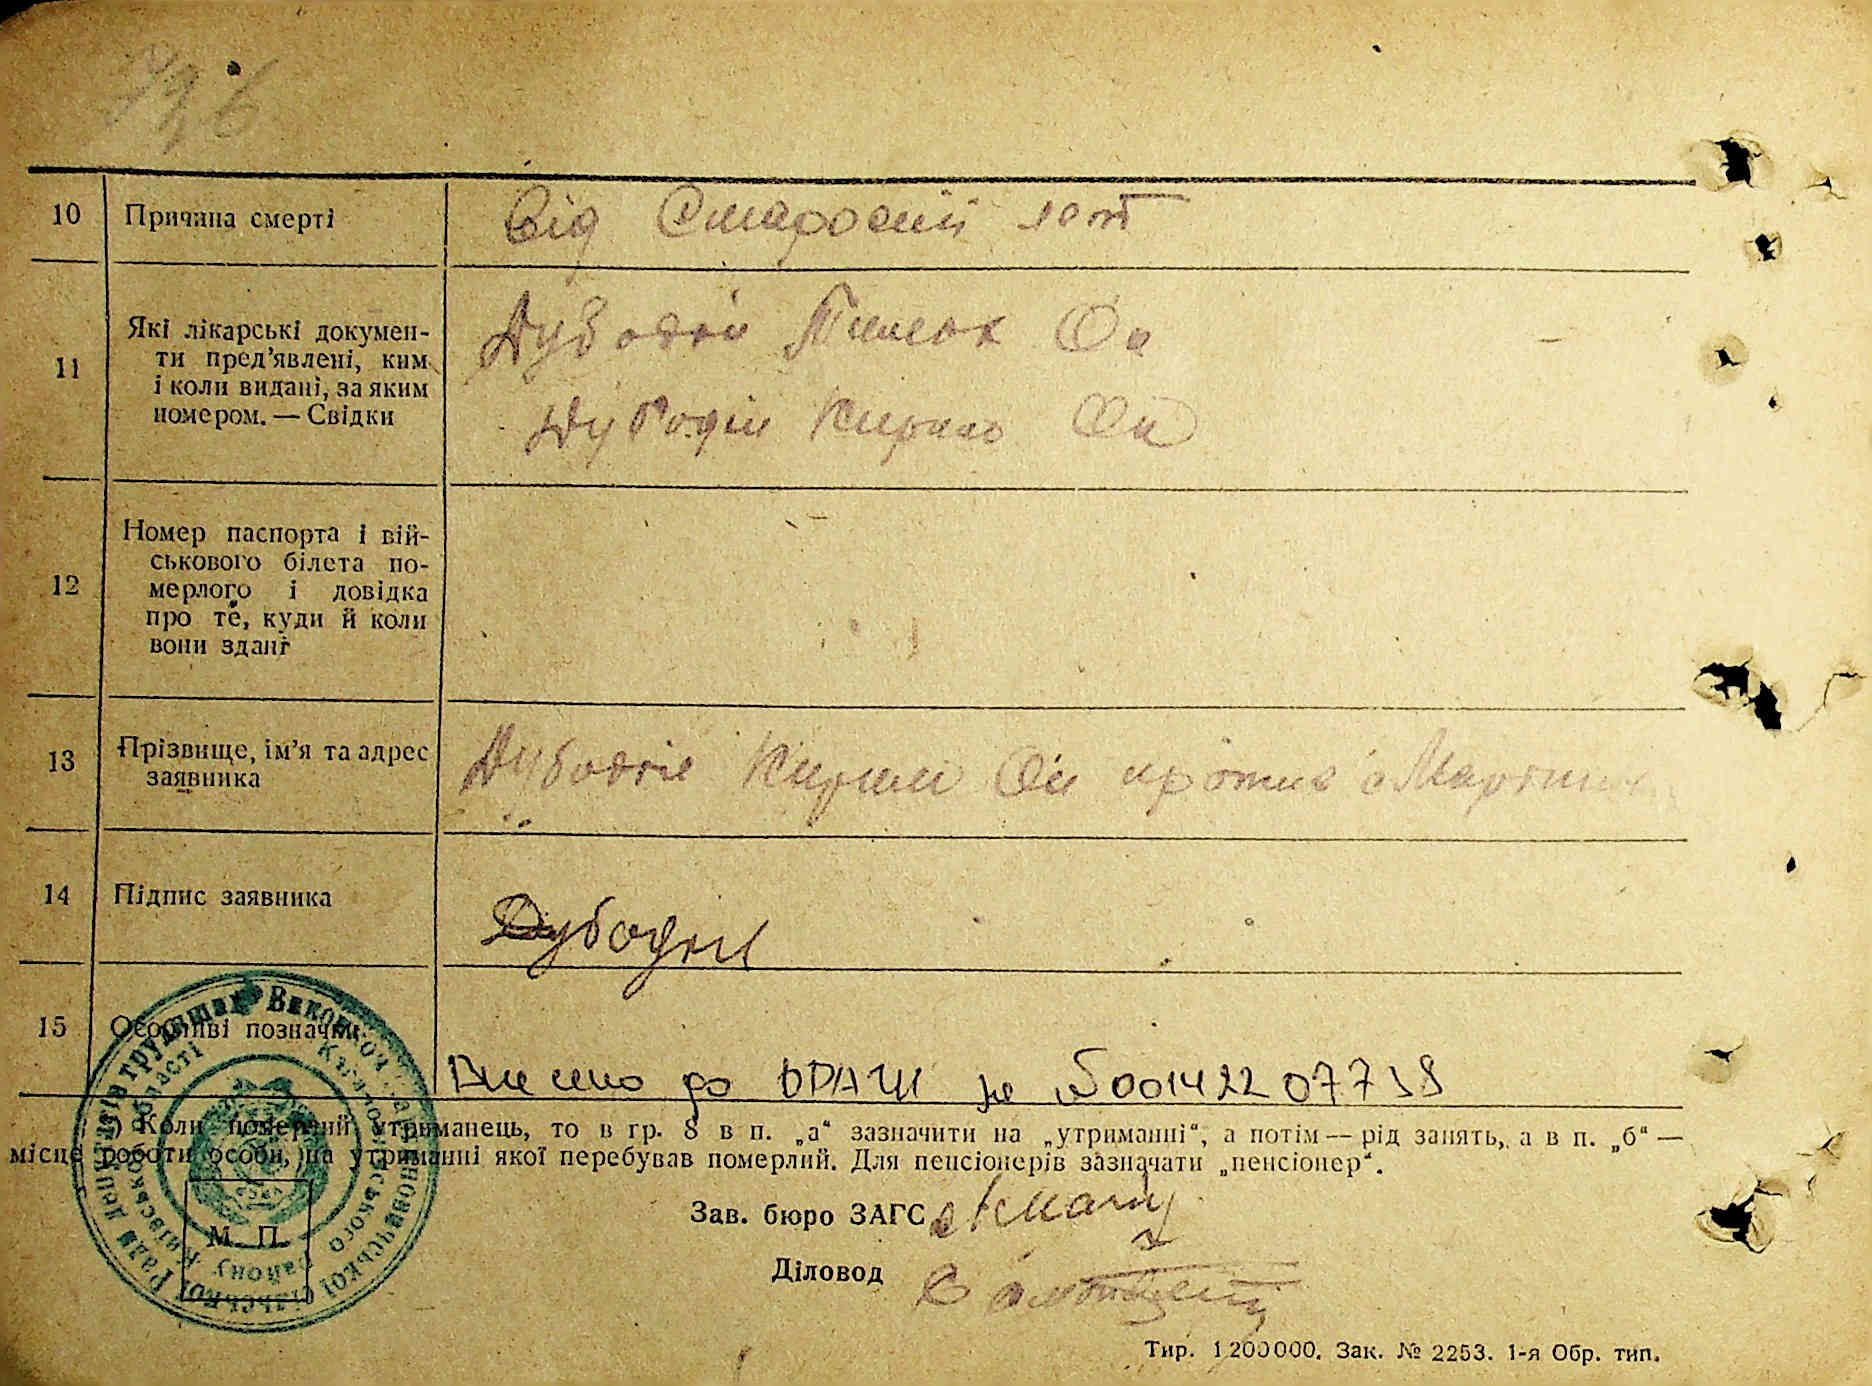 10 Причина смерті Від Старосний лет
11 Які лікарські докумен-
ти пред'явлені, ким
і коли видані, за яким
номером. — Свідки
Дубодій
Дубодій Кирило
12 Номер паспорта і вій-
ськового білета по-
мерлого і довідка
про те, куди й коли
вони здані
13 Прізвище, ім'я та адрес
заявника
Дубодій Кирил
14 Підпис заявника
Дубодій
15 Особливі позначки
Внесено до ДРАЦС за №00142207738
*) Коли померлий утриманець, то в гр. 8 в п. „а“ зазначити на „утриманні“, а потім — рід занять, а в п. „б“ —
місце роботи особи, на утриманні якої перебував померлий. Для пенсіонерів зазначати „пенсіонер“.
Зав. бюро ЗАГС
Діловод
М. П.
Київської області
району
Тир. 1200000. Зак. № 2253. 1-я Обр. тип.